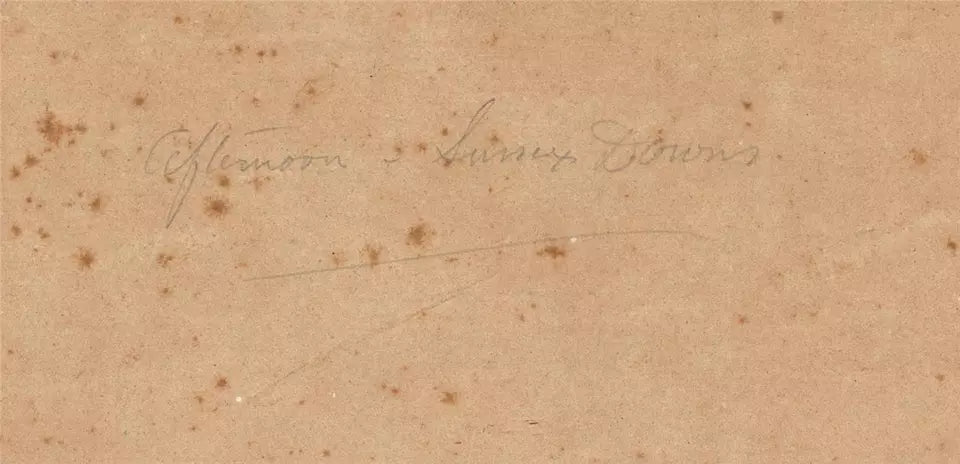 Afternoon - Sussex Downs